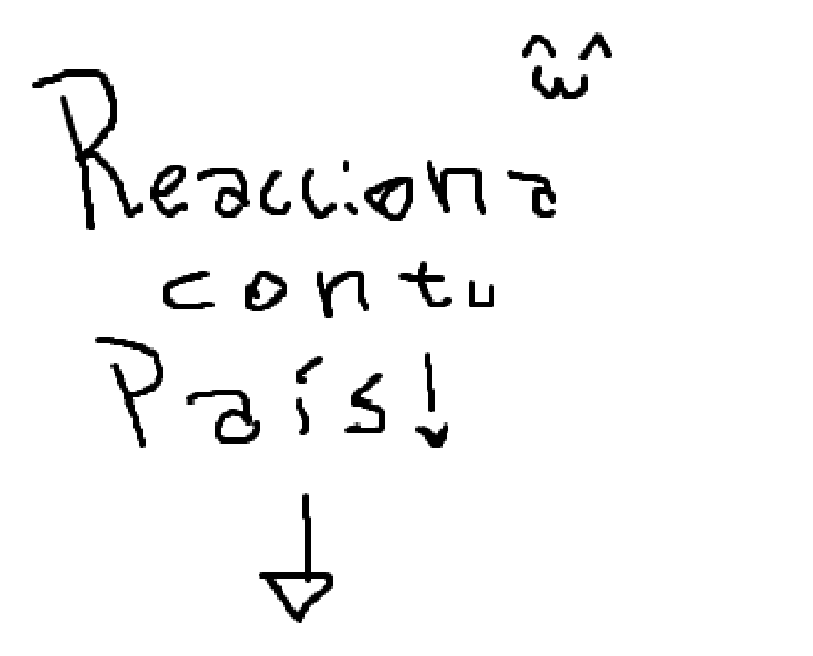 ^ω^
Reacciona
con tu
País!